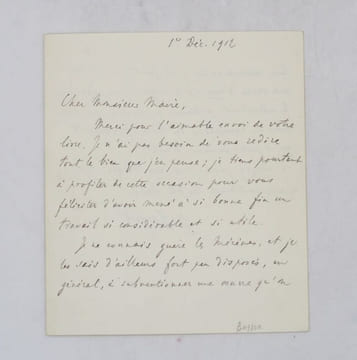 1er Déc. 1912
Cher Monsieur Maire,
Merci pour l'aimable envoi de votre
livre. Je n'ai pas besoin de vous redire
tout le bien que j'en pense ; je tiens pourtant
à profiter de cette occasion pour vous
féliciter d'avoir mené à si bonne fin un
travail si considérable et si utile.
Je ne connais guère de Mécènes, et je
les sais d'ailleurs fort peu disposés, en
général, à subventionner une œuvre qu'on